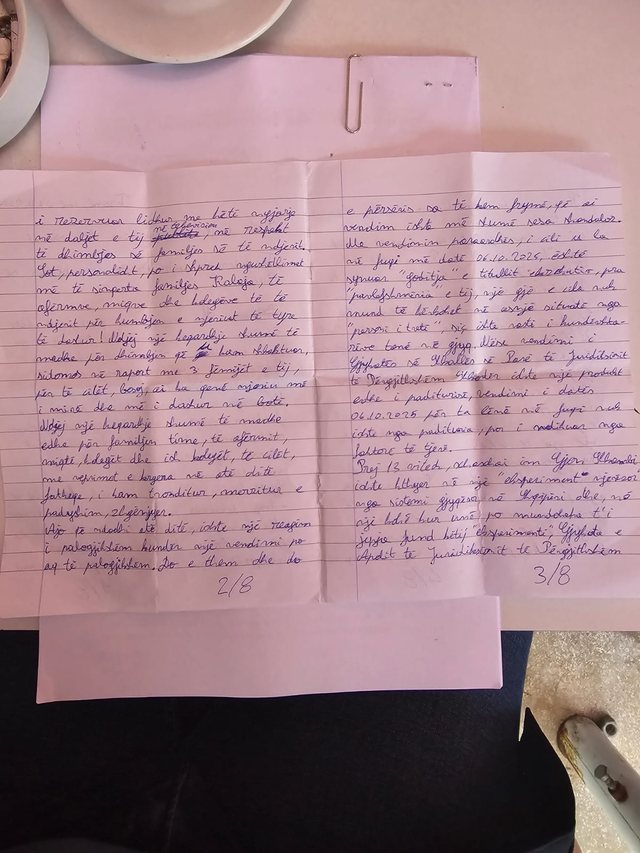 i rezervuar lidhur me këtë ngjarje
në daljet e tej në respekt
të dhimbjes së familjes së të ndjerit.
Sot, personalisht, po i shpreh ngushëllimet
më të sinqerta familjes Kaloja, të
afërmve, miqve dhe kolegëve të të
ndjerit për humbjen e njeriut të tyre
të dashur! Ndjej një keqardhje shumë të
madhe për dhimbjen që kam shkaktuar,
sidomos në raport me 3 fëmijët e tij,
për të cilët, besoj, ai ka qenë njeriu më
i mirë dhe më i dashur në botë.
Ndjej një keqardhje shumë të madhe
edhe për familjen time, të afërmit,
miqtë, kolegët dhe ish kolegët, të cilët,
me veprimet e kryera në atë ditë
fatkeqe, i kam tronditur, mërzitur e
padyshim, zhgënjyer.
Ajo që ndodhi atë ditë, ishte një reagim
i palogjikshëm kundër një vendimi po
aq të palogjikshëm. Do e them dhe do
2/8
e përsëris sa të kem frymë, që ai
vendim ishte më shumë sesa skandaloz.
Me vendimin paraardhës, i cili u la
në fuqi më datë 06.10.2025, është
synuar "goditja" e titullit ekzekutiv, pra
pavlefshmëria e tij, një gjë e cila nuk
mund të kërkohet në asnjë situatë nga
"personi i tretë", siç ishte rasti i kundërshta-
rëve tanë në gjyq. Nëse vendimi i
Gjykatës së Shkallës së Parë të Juridiksionit
të Përgjithshëm Shkodër ishte një produkt
edhe i paditurisë, vendimi i datës
06.10.2025 për ta lënë në fuqi nuk
ishte nga padituria, por i ndikuar nga
faktorë të tjerë.
Prej 13 vitesh, xhaxhai im Gjon Shkambi
ishte kthyer në një "eksperiment" njerëzor
nga sistemi gjyqësor në Shqipëri dhe, në
një kohë kur unë, po mundohesha t'i
jepja fund këtij "eksperimenti", Gjykata e
Apelit të Juridiksionit të Përgjithshëm
3/8